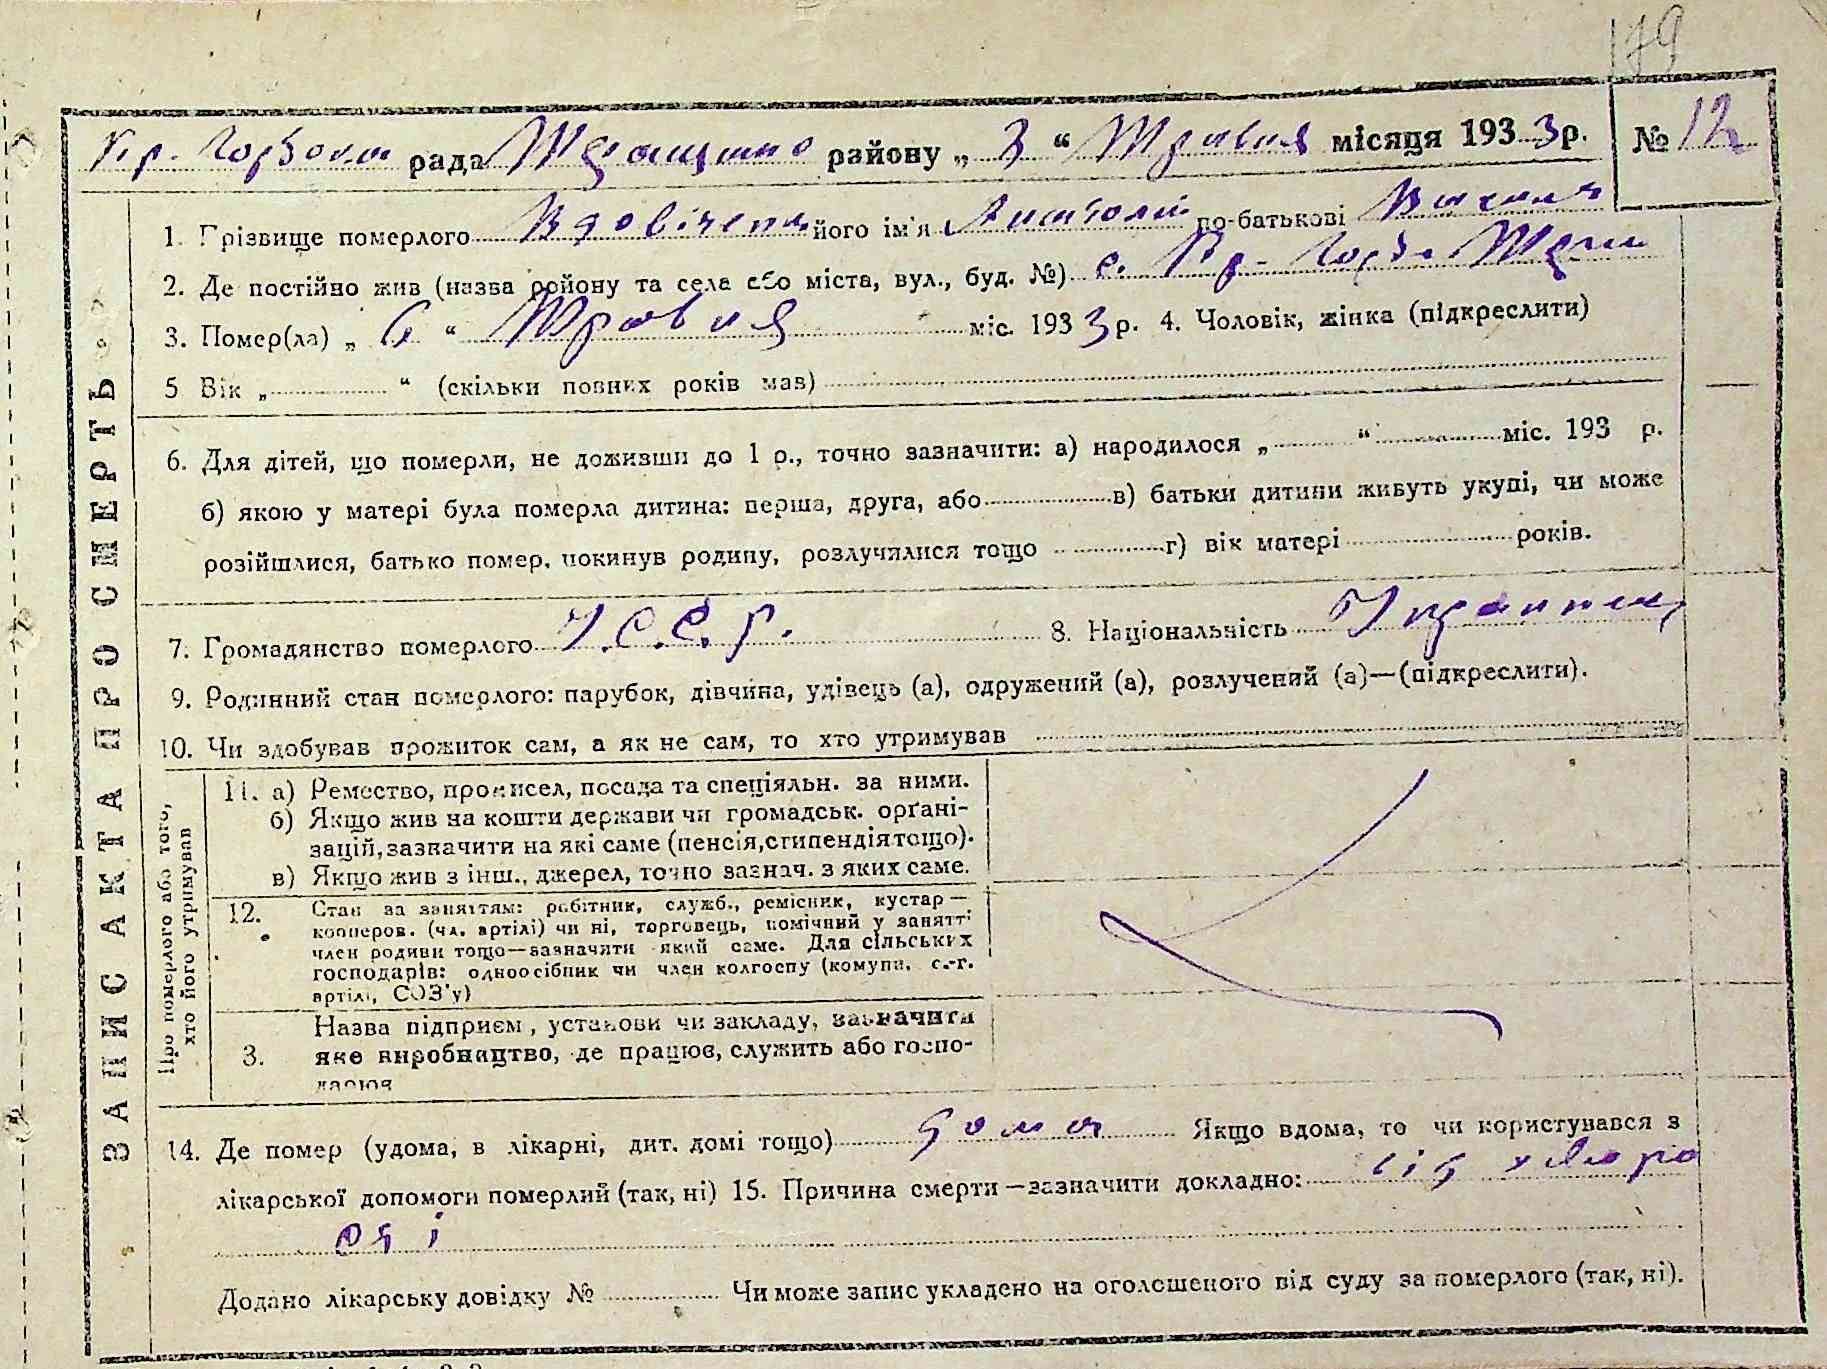 179
рада район у „ 3 “ Травня місяця 193 3 р. № 12
ЗАПИС АКТА ПРО СМЕРТЬ
1. Грізвище померлого його ім'я Анатолій по-батькові
2. Де постійно жив (назва району та села або міста, вул., буд. №) с.
3. Помер(ла) „ 6 “ Травня міс. 193 3 р. 4. Чоловік, жінка (підкреслити)
5 Вік „ “ (скільки повних років мав)
6. Для дітей, що померли, не доживши до 1 р., точно зазначити: а) народилося „ “ міс. 193 р.
б) якою у матері була померла дитина: перша, друга, або в) батьки дитини живуть укупі, чи може
розійшлися, батько помер, покинув родину, розлучилися тощо г) вік матері років.
7. Громадянство померлого У.С.С.Р. 8. Національність Українець
9. Родинний стан померлого: парубок, дівчина, удівець (а), одружений (а), розлучений (а)—(підкреслити).
10. Чи здобував прожиток сам, а як не сам, то хто утримував
Про померлого або того, хто його утримував
11. а) Ремество, промисел, посада та спеціяльн. за ними.
б) Якщо жив на кошти держави чи громадськ. орґані-
зацій, зазначити на які саме (пенсія, стипендія тощо).
в) Якщо жив з інш., джерел, точно зазнач. з яких саме.
12. Стан за заняттям: робітник, служб., ремісник, кустар —
кооперов. (чл. артілі) чи ні, торговець, помічний у занятті
член родини тощо—зазначити який саме. Для сільських
господарів: одноосібник чи член колгоспу (комуни, с.-г.
артілі, СОЗ'у)
3. Назва підприєм, установи чи закладу, зазначити
яке виробництво, де працює, служить або госпо-
дарює
14. Де помер (удома, в лікарні, дит. домі тощо) дома Якщо вдома, то чи користувався з
лікарської допомоги померлий (так, ні) 15. Причина смерти—зазначити докладно: від хворо
Додано лікарську довідку № Чи може запис укладено на оголошеного від суду за померлого (так, ні).